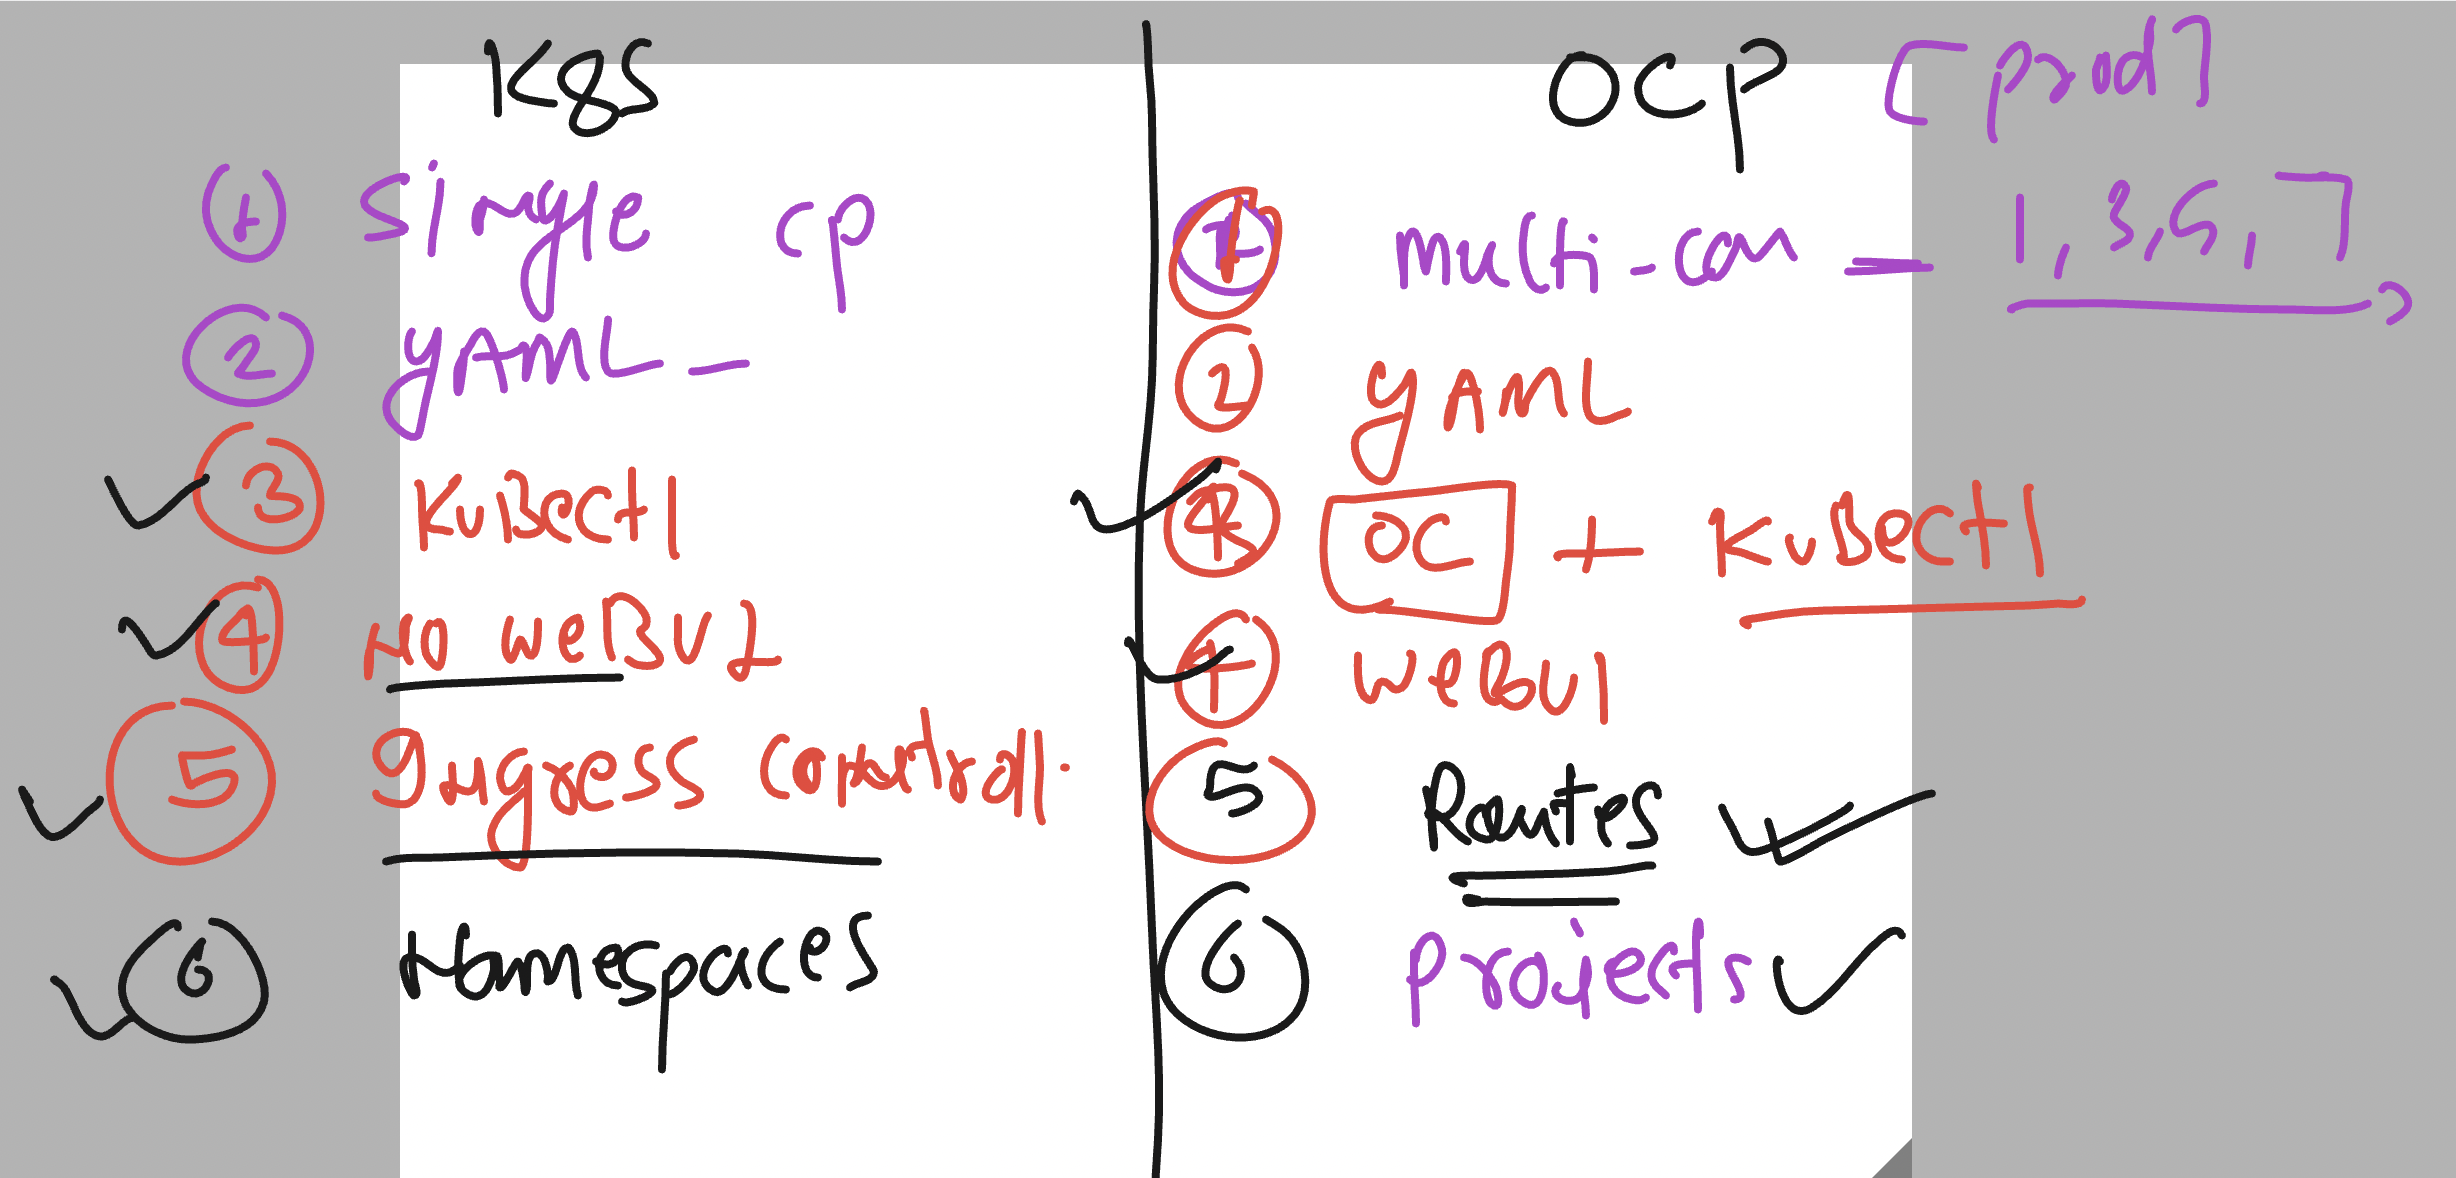 K8S
① Single CP
② YAML -
③ KuBectl
④ NO WeBUI
⑤ Ingress Controll.
⑥ Namespaces
OCP [prod]
① Multi-con = 1, 3, 5, 7,
② YAML
OC + KuBectl
④ WeBUI
⑤ Routes
⑥ Projects